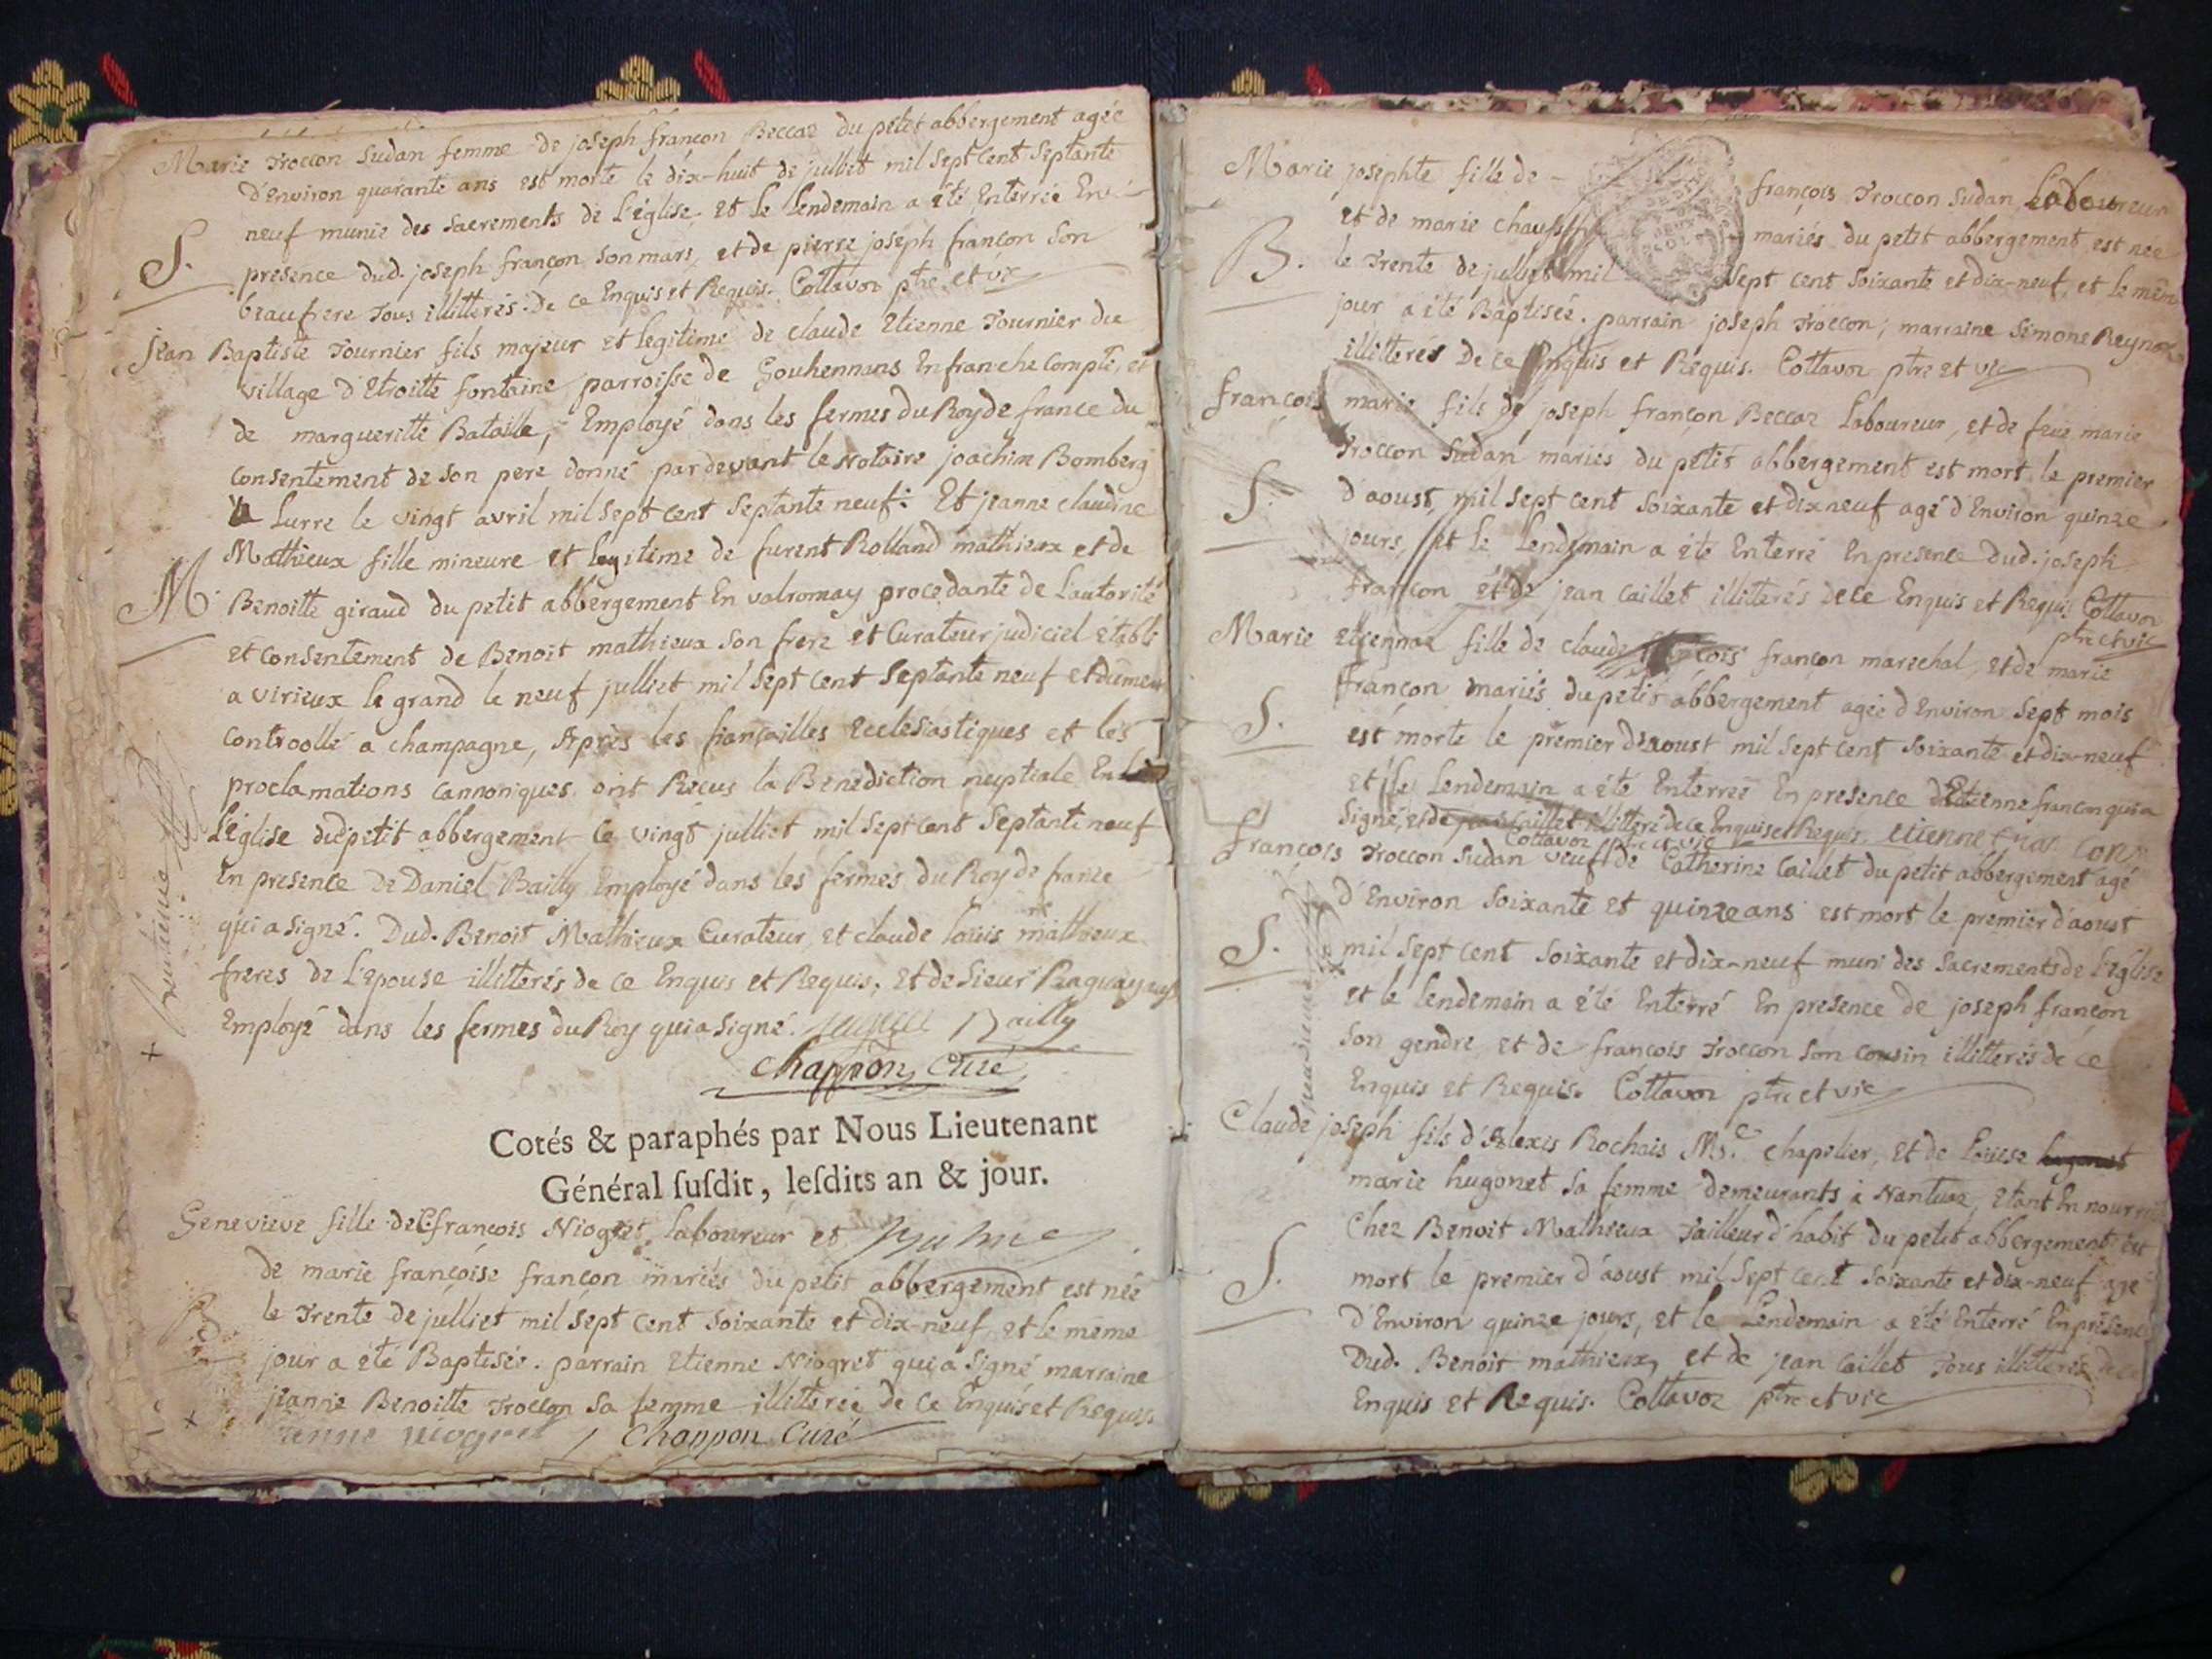 Marie Troccon Sudan femme de joseph françon Beccaz du petit abbergement agée
d'Environ quarante ans est morte le dix-huit de julliet mil Sept Cent Septante
neuf munie des Sacrements de L'église, et Le Lendemain a été Enterrée En
S. presence dud. joseph françon Son mari, et de pierre joseph françon Son
beaufrere Tous illitterés. de Ce Enquis et Requis. Cottavoz ptre et vic
jean Baptiste Tournier fils majeur et legitime de claude Etienne Tournier du
village d'Etroitte fontaine parroisse de Gouhennans En franche Compté, et
de margueritte Bataille, Employé dans les fermes du Roy de france du
Consentement de Son pere donné pardevant le Notaire joachim Bomberg
a Lurre le vingt avril mil Sept Cent Septante neuf: Et jeanne claudine
Mathieux fille mineure et legitime de furent Rolland mathieux et de
M. Benoitte giraud du petit abbergement En valromay procedante de L'autorité
et Consentement de Benoit mathieux Son frere et Curateur judiciel établi
a virieux le grand le neuf julliet mil Sept Cent Septante neuf et dument
Controollé a champagne, Après les fiançailles Ecclesiastiques et les
proclamations Cannoniques. ont Recus la Benediction nuptiale En
L'église dud. petit abbergement Ce vingt julliet mil Sept Cent Septante neuf
En presence De Daniel Bailly Employé dans les fermes du Roy de france
qui a Signé. Dud. Benoit Mathieux Curateur et claude louis mathieux
freres de L'epouse illitterés de Ce Enquis et Requis, et de Sieur Raguay
Employé dans les fermes du Roy qui a Signé. Bailly
Chappon Curé
Cotés & paraphés par Nous Lieutenant
Général ſuſdit, leſdits an & jour.
Genevieve fille de C. françois Niogret, Laboureur et
de marie françoise françon mariés du petit abbergement est née
le Trente de julliet mil Sept Cent Soixante et dix-neuf, et le même
B. jour a été Baptisée. parrain Etienne Niogret qui a Signé marraine
jeanne Benoitte Troccon Sa femme illitterée de Ce Enquis et Requis.
niogret Chappon Curé
Marie josephte fille de françois Troccon Sudan Laboureur
et de marie mariés du petit abbergement est née
B. le Trente de julliet mil Sept Cent Soixante et dix-neuf, et le même
jour a été Baptisée. parrain joseph Troccon; marraine Simone
illitterés De Ce Enquis et Requis. Cottavoz ptre et vic
françois marie fils de joseph françon Beccaz Laboureur, et de feue marie
Troccon Sudan mariés du petit abbergement est mort le premier
S. d'aoust mil Sept Cent Soixante et dix neuf agé d'Environ quinze
jours, et le Lendemain a été Enterré En presence Dud. joseph
françon et de jean Caillet illitterés de Ce Enquis et Requis Cottavoz
ptre et vic
Marie etiennaz fille de claude françois françon marechal, et de marie
françon mariés du petit abbergement agée d'Environ Sept mois
S. est morte le premier d'aoust mil Sept Cent Soixante et dix-neuf
et le Lendemain a été Enterrée En presence d'Etienne françon qui a
Signé, et de jean Caillet illitteré de Ce Enquis et Requis. etienne françon
Cottavoz ptre et vic
françois Troccon Sudan veuf de Catherine Caillet du petit abbergement agé
d'Environ Soixante et quinze ans est mort le premier d'aoust
S. mil Sept Cent Soixante et dix-neuf muni des Sacrements de L'église
et le lendemain a été Enterré En presence de joseph françon
Son gendre et de françois Troccon Son Cousin illitterés de Ce
Enquis et Requis. Cottavoz ptre et vic
Claude joseph fils d'Alexis Rochais Me. chapelier, et de Louise
marie hugonet Sa femme demeurants à Nantua, etant En nourrice
Chez Benoit Mathieux Tailleur d'habit du petit abbergement est
S. mort le premier d'aoust mil Sept Cent Soixante et dix-neuf agé
d'Environ quinze jours, et le Lendemain a été Enterré En présence
Dud. Benoit mathieux, et de jean Caillet Tous illitterés de Ce
Enquis et Requis. Cottavoz ptre et vic